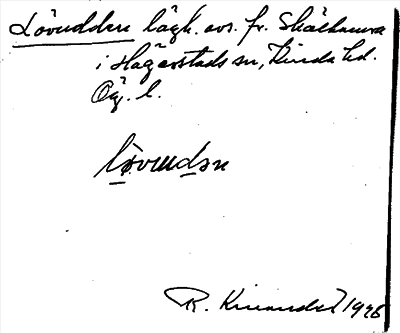 Lövudden lägh. avs. fr. Skälhamra
i Hägerstads sn, Kinda hd.
Ög. l.
lövudən
R. Kinander 1926